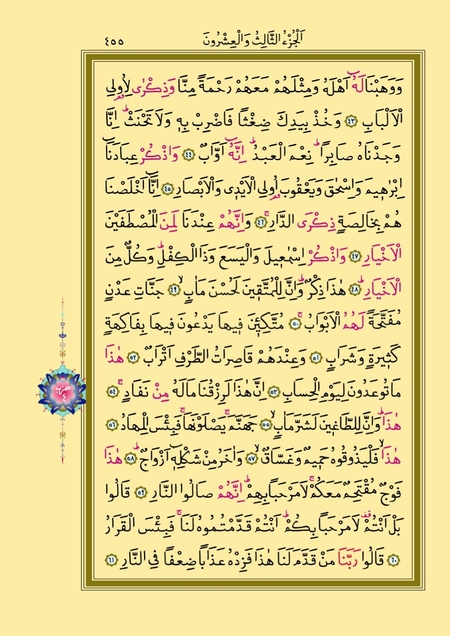 اَلْجُزْءُ الثَّالِثُ وَالْعِشْرُونَ ٤٥٥
وَوَهَبْنَا لَهُٓ اَهْلَهُ وَمِثْلَهُمْ مَعَهُمْ رَحْمَةً مِنَّا وَذِكْرٰى لِاُو۬لِي
الْاَلْبَابِ ﴿٤٣﴾ وَخُذْ بِيَدِكَ ضِغْثًا فَاضْرِبْ بِه۪ وَلَا تَحْنَثْۜ اِنَّا
وَجَدْنَاهُ صَابِرًاۜ نِعْمَ الْعَبْدُۜ اِنَّهُٓ اَوَّابٌ ﴿٤٤﴾ وَاذْكُرْ عِبَادَنَٓا
اِبْرٰه۪يمَ وَاِسْحٰقَ وَيَعْقُوبَ اُو۬لِي الْاَيْد۪ي وَالْاَبْصَارِ ﴿٤٥﴾ اِنَّٓا اَخْلَصْنَا
هُمْ بِخَالِصَةٍ ذِكْرَى الدَّارِۚ ﴿٤٦﴾ وَاِنَّهُمْ عِنْدَنَا لَمِنَ الْمُصْطَفَيْنَ
الْاَخْيَارِۜ ﴿٤٧﴾ وَاذْكُرْ اِسْمٰع۪يلَ وَالْيَسَعَ وَذَا الْكِفْلِۜ وَكُلٌّ مِنَ
الْاَخْيَارِۜ ﴿٤٨﴾ هٰذَا ذِكْرٌۜ وَاِنَّ لِلْمُتَّق۪ينَ لَحُسْنَ مَاٰبٍۙ ﴿٤٩﴾ جَنَّاتِ عَدْنٍ
مُفَتَّحَةً لَهُمُ الْاَبْوَابُۚ ﴿٥٠﴾ مُتَّكِـ۪ٔينَ ف۪يهَا يَدْعُونَ ف۪يهَا بِفَاكِهَةٍ
كَث۪يرَةٍ وَشَرَابٍ ﴿٥١﴾ وَعِنْدَهُمْ قَاصِرَاتُ الطَّرْفِ اَتْرَابٌ ﴿٥٢﴾ هٰذَا
مَا تُوعَدُونَ لِيَوْمِ الْحِسَابِ ﴿٥٣﴾ اِنَّ هٰذَا لَرِزْقُنَا مَا لَهُ مِنْ نَفَادٍۚ ﴿٥٤﴾
هٰذَاۜ وَاِنَّ لِلطَّاغ۪ينَ لَشَرَّ مَاٰبٍۙ ﴿٥٥﴾ جَهَنَّمَۚ يَصْلَوْنَهَاۚ فَبِئْسَ الْمِهَادُ ﴿٥٦﴾
هٰذَاۙ فَلْيَذُوقُوهُ حَم۪يمٌ وَغَسَّاقٌۙ ﴿٥٧﴾ وَاٰخَرُ مِنْ شَكْلِه۪ٓ اَزْوَاجٌۜ ﴿٥٨﴾ هٰذَا
فَوْجٌ مُقْتَحِمٌ مَعَكُمْۚ لَا مَرْحَبًا بِهِمْۜ اِنَّهُمْ صَالُوا النَّارِ ﴿٥٩﴾ قَالُوا
بَلْ اَنْتُمْ۠ لَا مَرْحَبًا بِكُمْۜ اَنْتُمْ قَدَّمْتُمُوهُ لَنَاۚ فَبِئْسَ الْقَرَارُ
﴿٦٠﴾ قَالُوا رَبَّنَا مَنْ قَدَّمَ لَنَا هٰذَا فَزِدْهُ عَذَابًا ضِعْفًا فِي النَّارِ ﴿٦١﴾